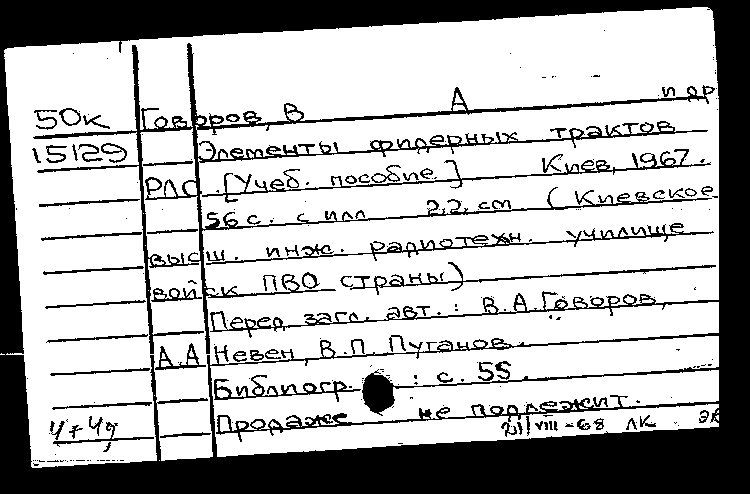 50к Говоров, В А и др
15129 Элементы фидерных трактов
РЛС. [Учеб. пособие] Киев, 1967.
56 с. с илл 22 cm (Киевское
высш. инж. радиотехн. училище
войск ПВО страны)
Перед загл. авт.: В.А. Говоров,
А.А Невен, В.П. Луганов.
Библиогр. : с. 55.
Продаже не подлежит.
4+4
VIII-68 ЛК